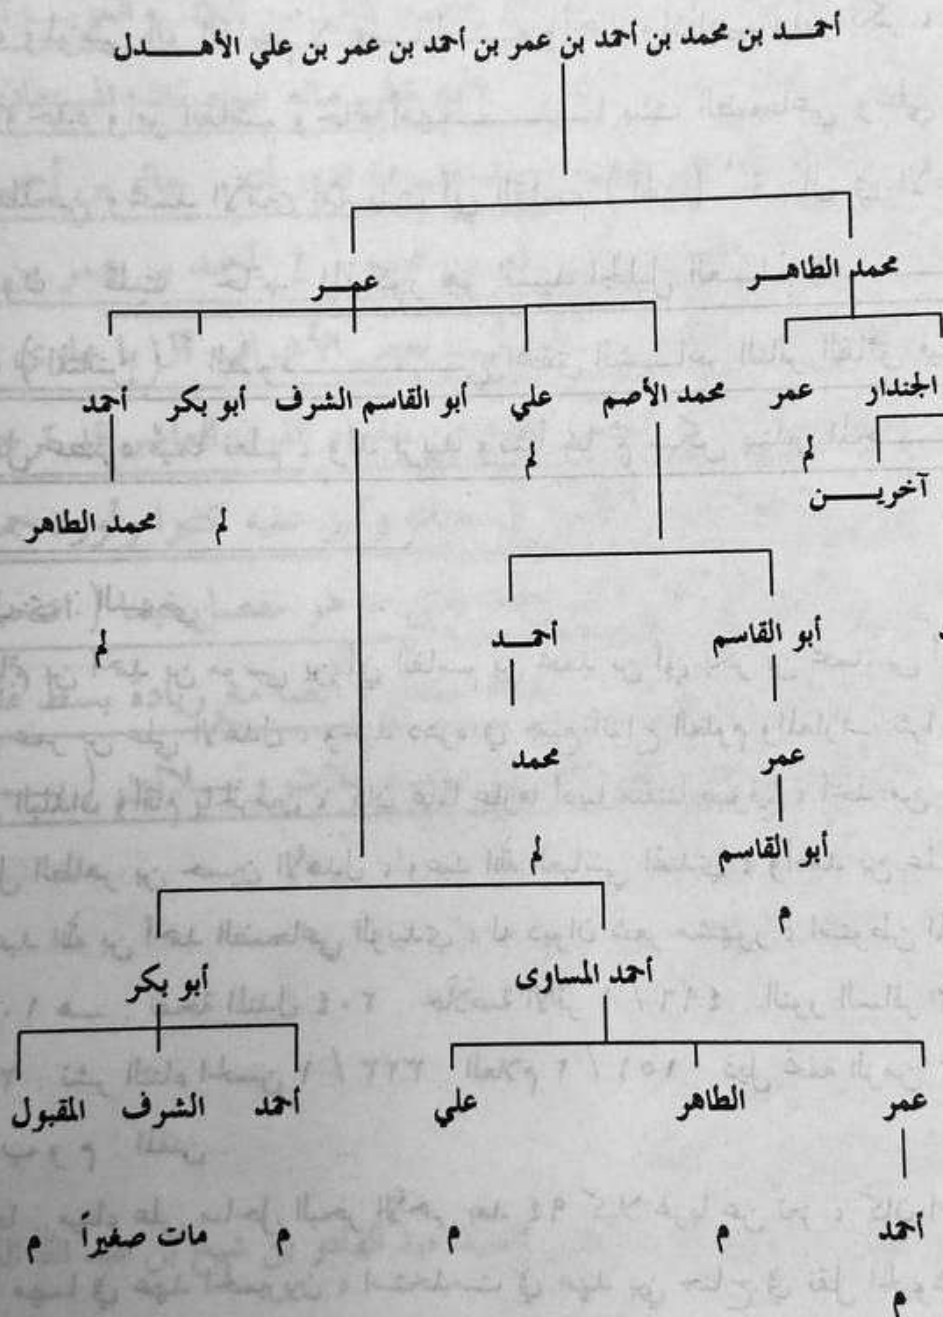 أحمـــد بن محمد بن أحمد بن عمر بن أحمد بن عمر بن علي الأهـــــدل
محمد الطاهـــر
عمـــر
الجندار
عمر
محمد الأصم
علي
أبو القاسم الشرف
أبو بكر
أحمد
لم
لم
آخريــــن
لم
محمد الطاهر
أبو القاسم
أحمـــد
لم
عمر
محمد
أبو القاسم
لم
م
أحمد المساوى
أبو بكر
عمر
الطاهر
علي
أحمد
الشرف
المقبول
أحمد
م
م
م
مات صغيراً
م
م